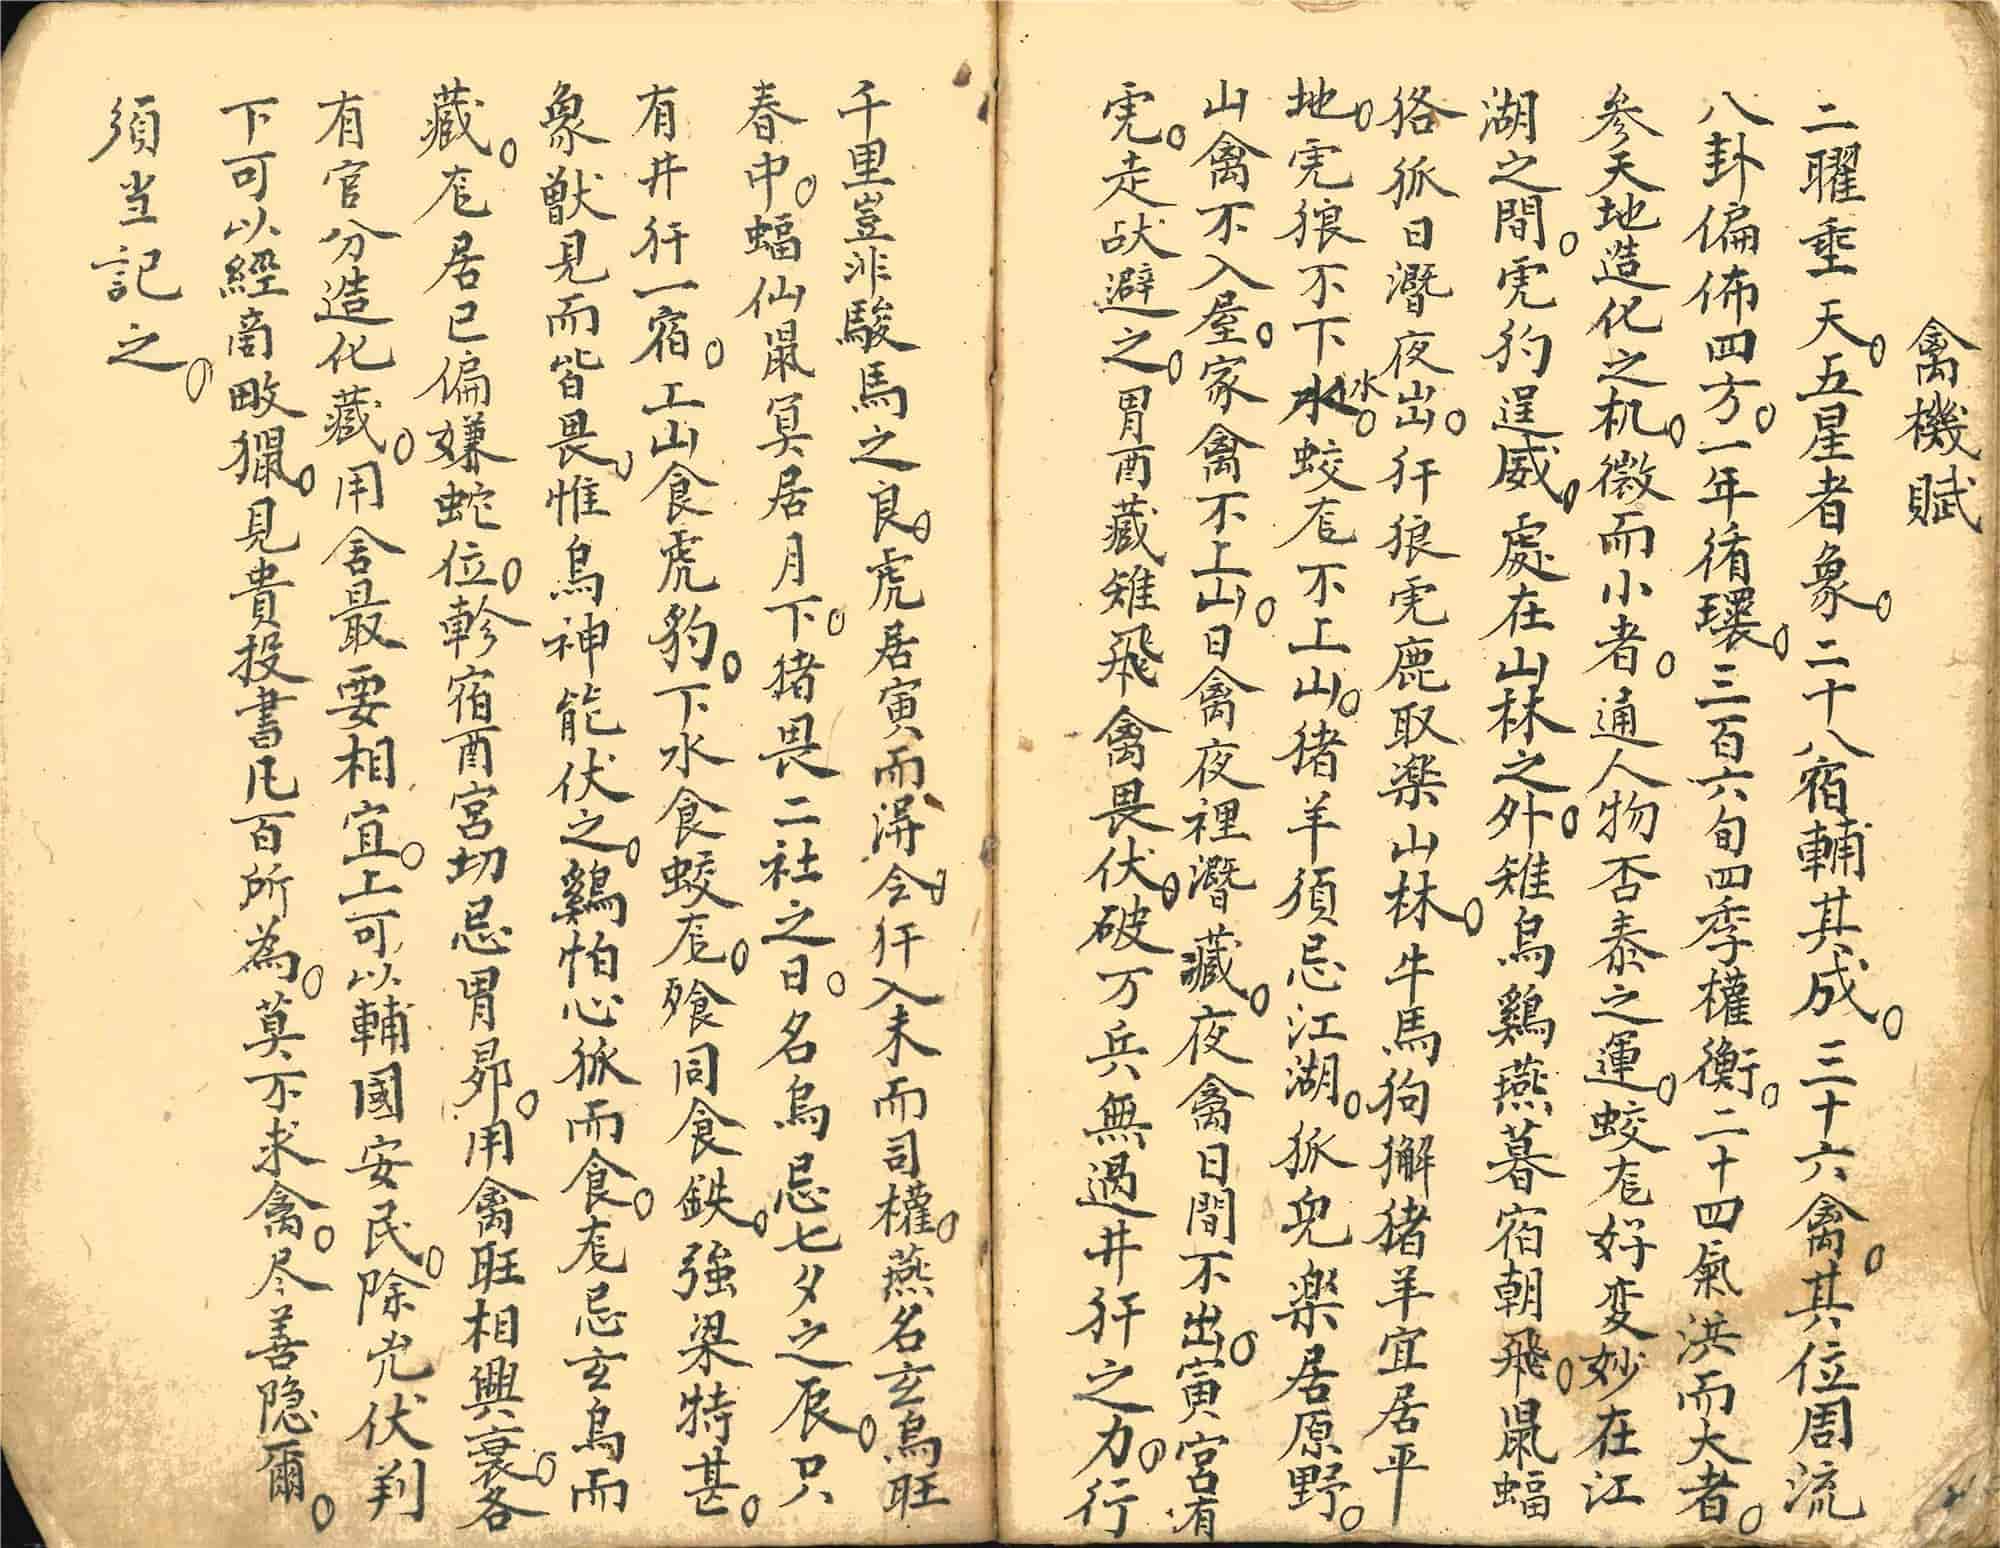 禽機賦
二曜垂天。五星者象。二十八宿輔其成。三十六禽。其位周流
八卦偏佈四方。一年循環。三百六旬四季權衡。二十四氣洪而大者。
参天地造化之机。微而小者。通人物否泰之運。蛟龙好变妙在江
湖之間。虎豹逞威。處在山林之外。雉烏鷄燕暮宿朝飛。鼠蝠
狢狐日潛夜出。犴狼虎鹿取楽山林。牛馬狗獬猪羊宜居平
地。虎狼不下水。蛟龙不上山。猪羊須忌江湖。狐兔楽居原野。
山禽不入屋。家禽不上山。日禽夜裡潛藏。夜禽日間不出。寅宮有
虎。走獸避之。胃酉藏雉飛禽畏伏。破万兵無過井犴之力。行
千里豈非駿馬之良。虎居寅而得令。犴入未而司權。燕名玄烏旺
春中。蝠仙鼠箕居月下。猪畏二社之日。名烏忌七夕之辰。只
有井犴一宿。上山食虎豹。下水食蛟龙。飱同食鉄。強梁特甚。
象獸見而皆畏。惟烏神能伏之。鷄怕心狐而食。龙忌玄烏而
藏。龙居巳偏嫌蛇位。軫宿酉宮切忌胃昴。用禽旺相興衰。各
有官分造化藏。用舍最要相宜。上可以輔國安民。除兇伏判
下可以經商畋獵。見貴投書凡百所為。莫不求禽。尽善隐爾。
須当記之。